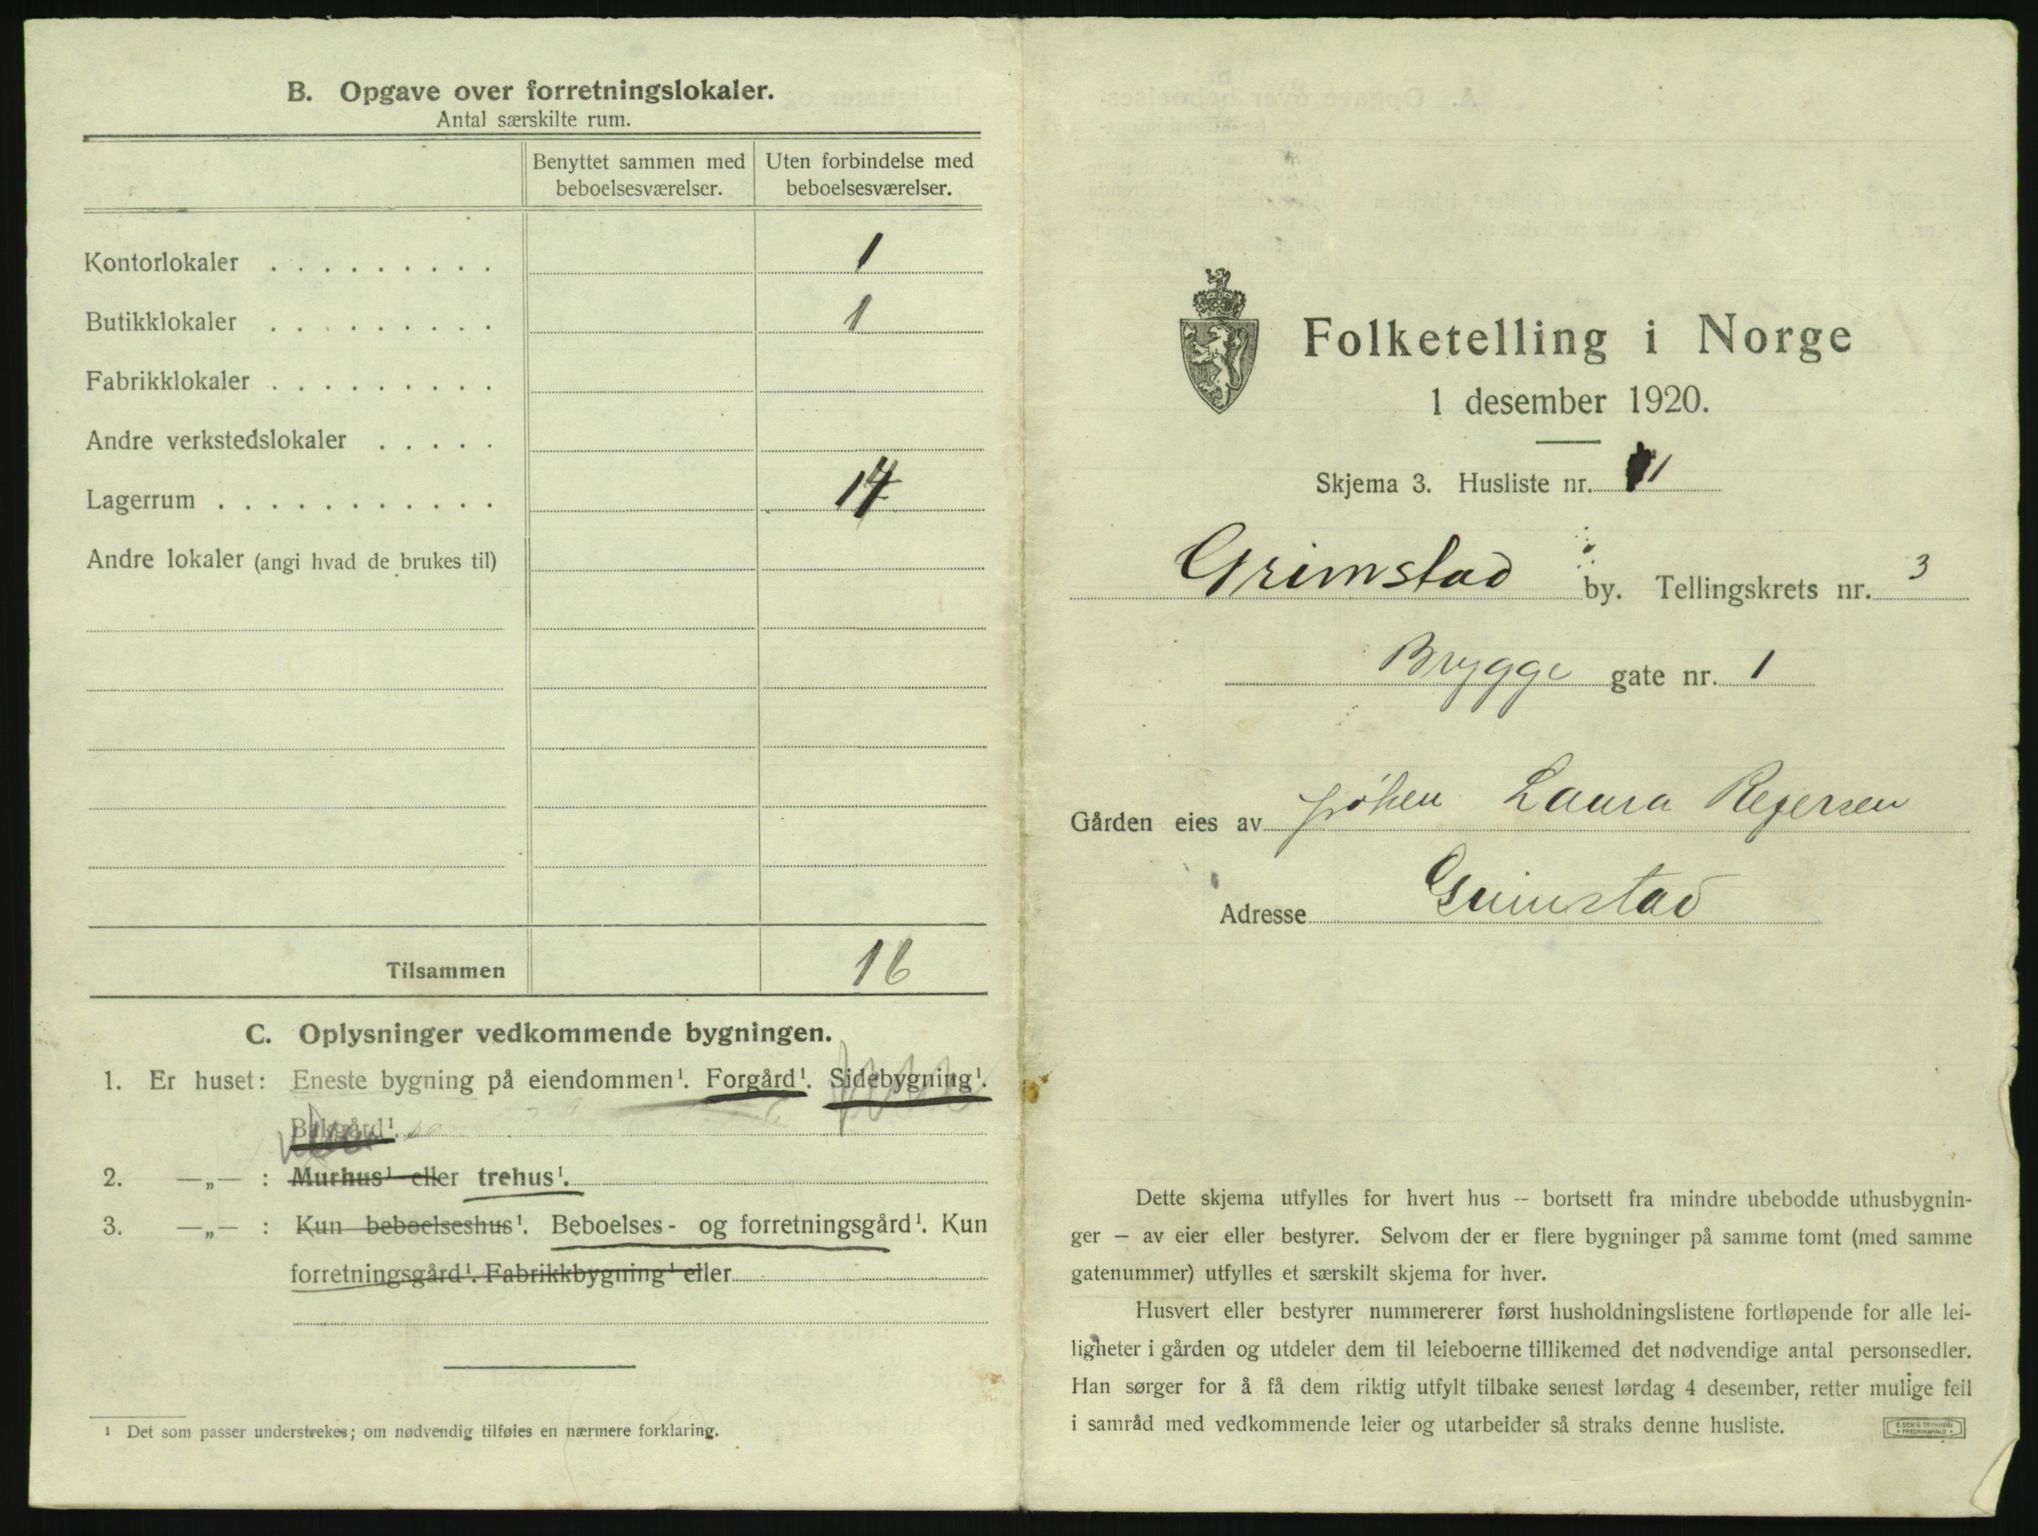 B. Opgave over forretningslokaler.
Antal særskilte rum.
Benyttet sammen med beboelsesværelser.
Uten forbindelse med beboelsesværelser.
Kontorlokaler . . . . . . . . . 1
Butikklokaler . . . . . . . . . 1
Fabrikklokaler . . . . . . . . .
Andre verkstedslokaler . . . . .
Lagerrum . . . . . . . . . . . 14
Andre lokaler (angi hvad de brukes til)
Tilsammen 16
C. Oplysninger vedkommende bygningen.
1. Er huset: Eneste bygning på eiendommen¹. Forgård¹. Sidebygning¹.
Bakgård¹.
2. —„— : Murhus¹ eller trehus¹.
3. —„— : Kun beboelseshus¹. Beboelses- og forretningsgård¹. Kun
forretningsgård¹. Fabrikkbygning¹ eller
¹ Det som passer understrekes; om nødvendig tilføies en nærmere forklaring.
Folketelling i Norge
1 desember 1920.
Skjema 3. Husliste nr. 1
Grimstad by. Tellingskrets nr. 3
Brygge gate nr. 1
Gården eies av frøken Laura Rejersen
Adresse Grimstad
Dette skjema utfylles for hvert hus — bortsett fra mindre ubebodde uthusbygnin-
ger — av eier eller bestyrer. Selvom der er flere bygninger på samme tomt (med samme
gatenummer) utfylles et særskilt skjema for hver.
Husvert eller bestyrer nummererer først husholdningslistene fortløpende for alle lei-
ligheter i gården og utdeler dem til leieboerne tillikemed det nødvendige antal personsedler.
Han sørger for å få dem riktig utfylt tilbake senest lørdag 4 desember, retter mulige feil
i samråd med vedkommende leier og utarbeider så straks denne husliste.